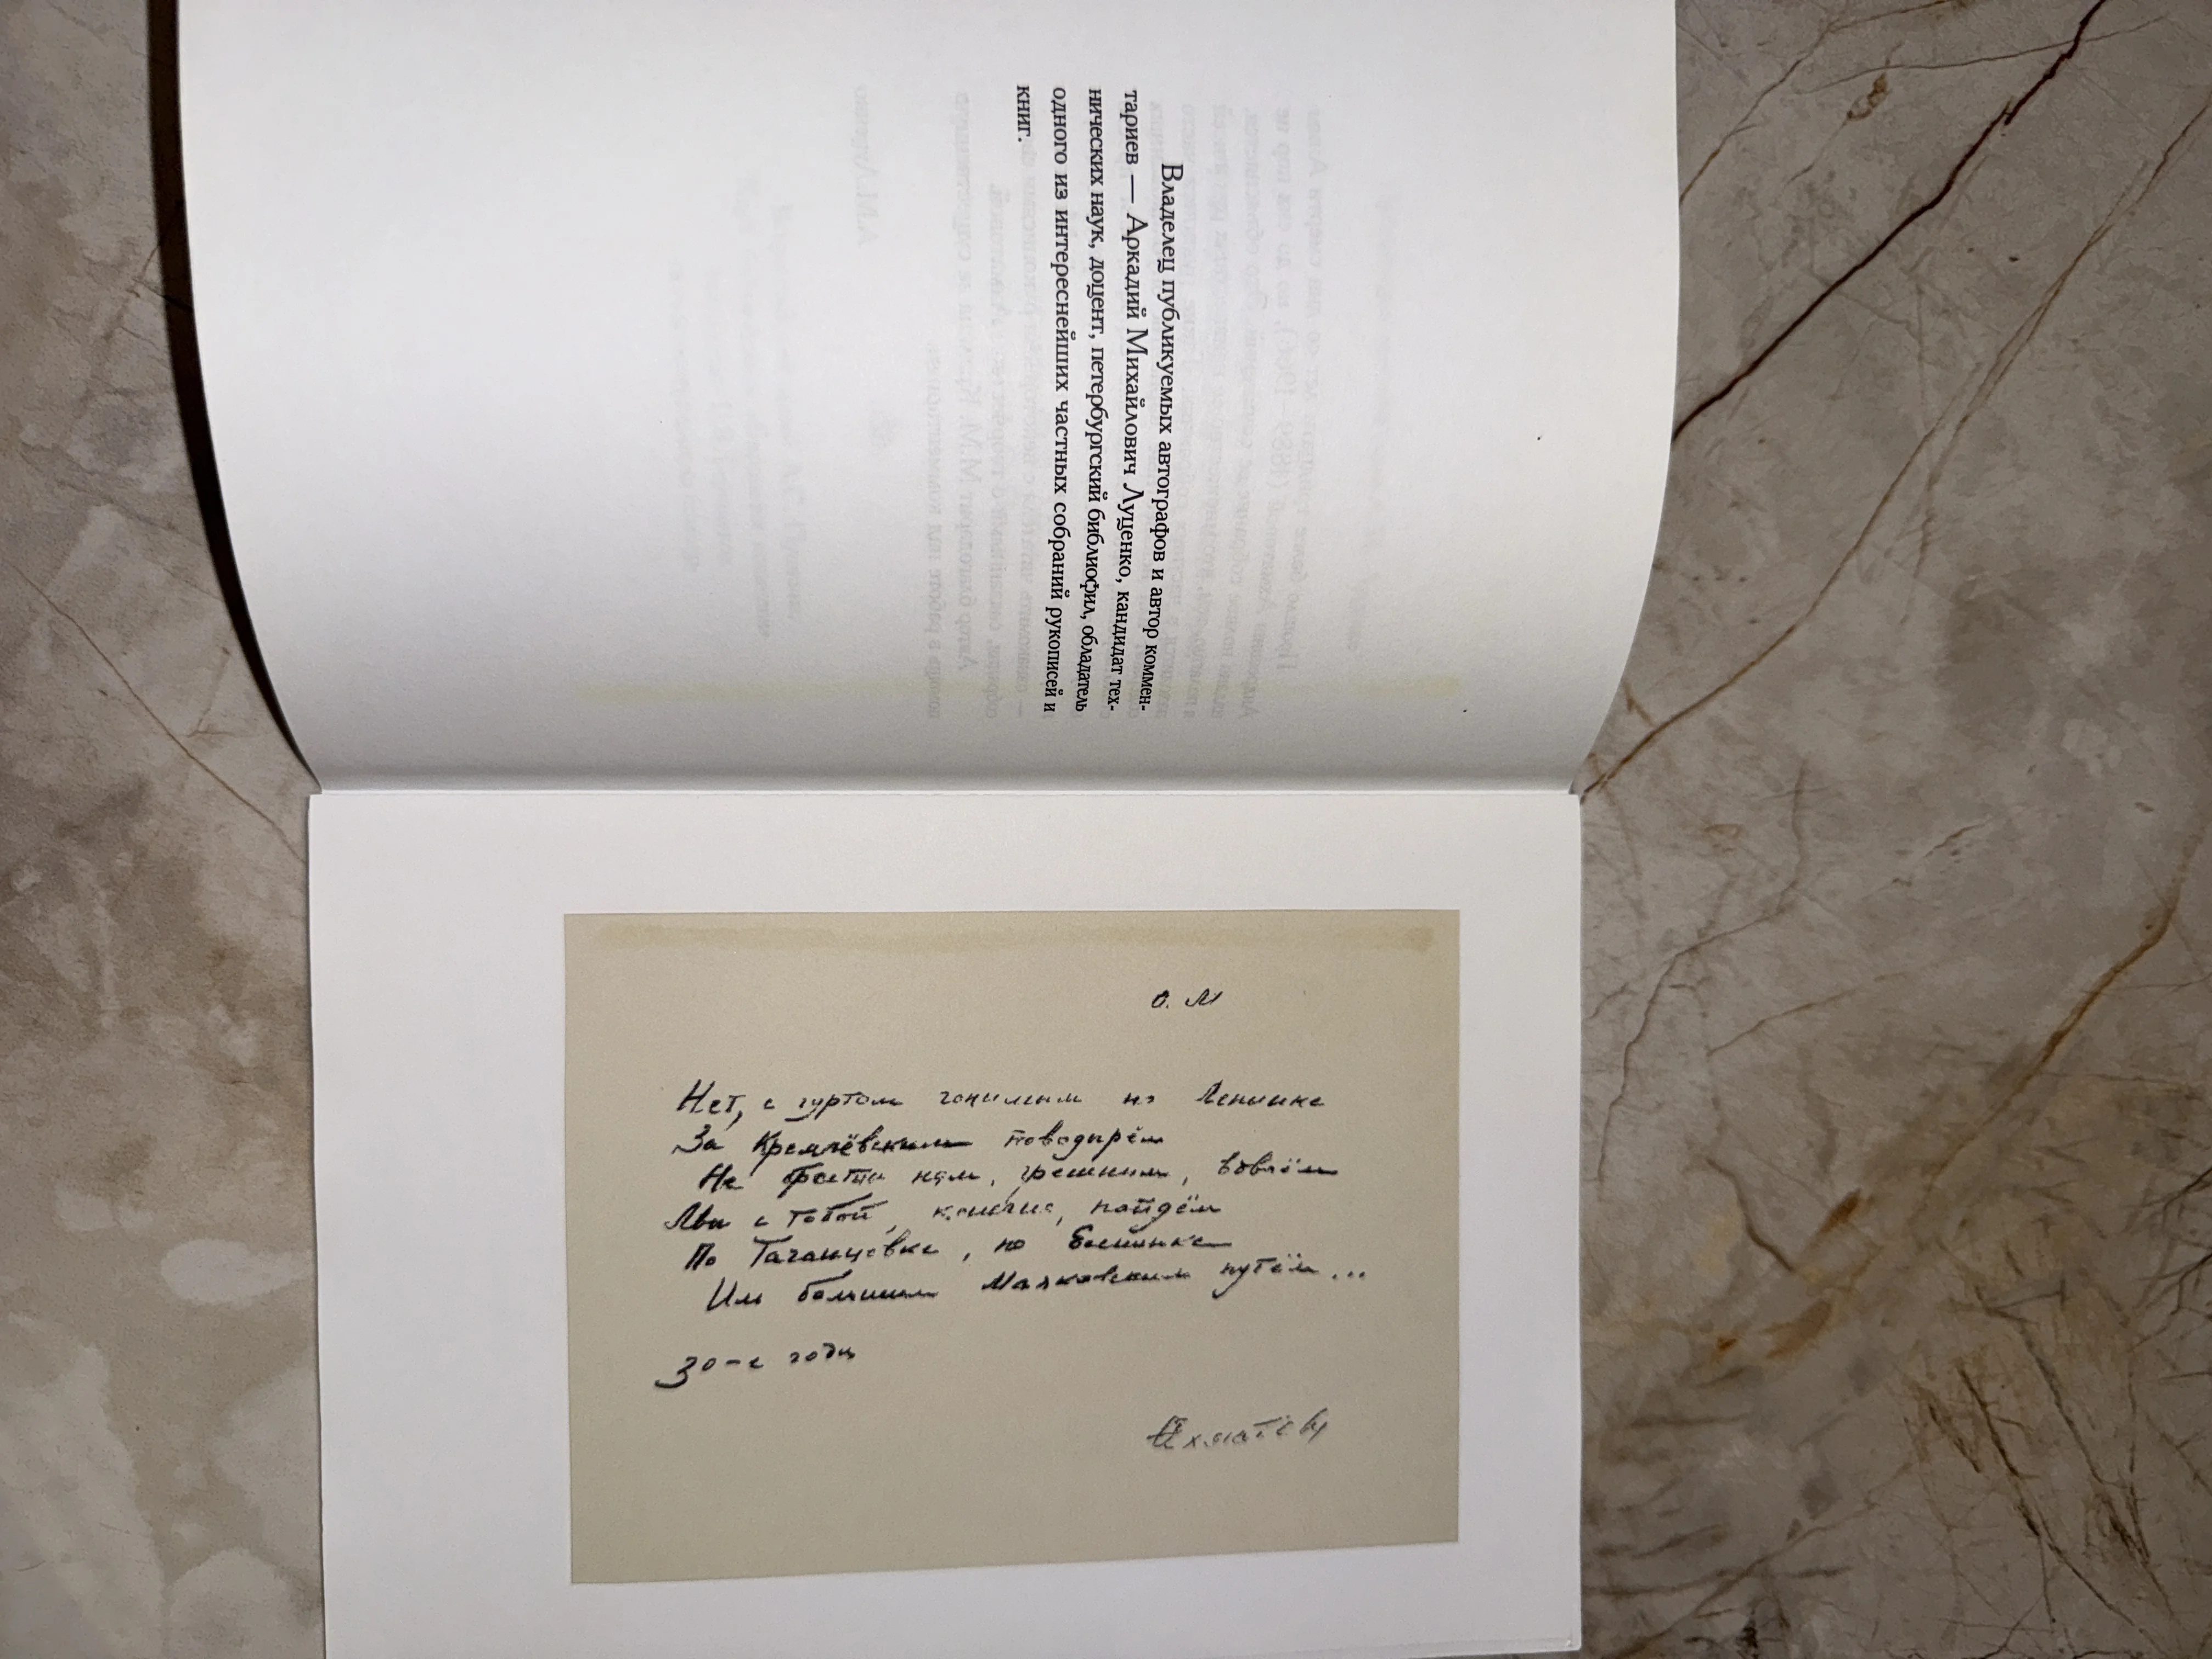 Владелец публикуемых автографов и автор коммен-
тариев — Аркадий Михайлович Луценко, кандидат тех-
нических наук, доцент, петербургский библиофил, обладатель
одного из интереснейших частных собраний рукописей и
книг.
О. М
Нет, с гуртом гонимым по Ленинке
За Кремлёвским поводырём
Не брести нам, грешным, вдвоём
Мы с тобой, конечно, пойдём
По Таганцевке, по Есенинке
Иль большим Маяковским путём...
30-е годы
Ахматова